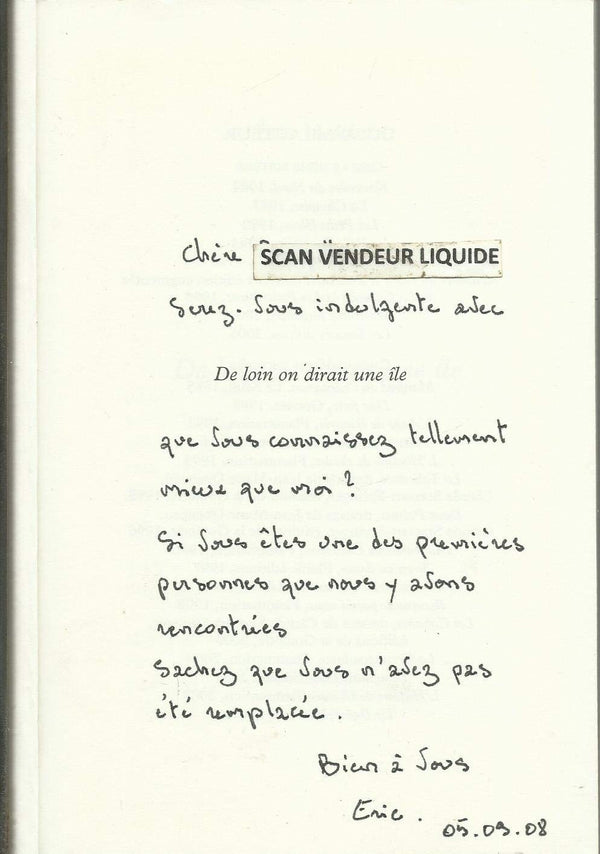 Chère SCAN VENDEUR LIQUIDE
Serez-vous indulgente avec
De loin on dirait une île
que vous connaissez tellement
mieux que moi ?
Si vous êtes une des premières
personnes que nous y avons
rencontrées
Sachez que vous n'avez pas
été remplacée.
Bien à vous
Eric.
05.09.08